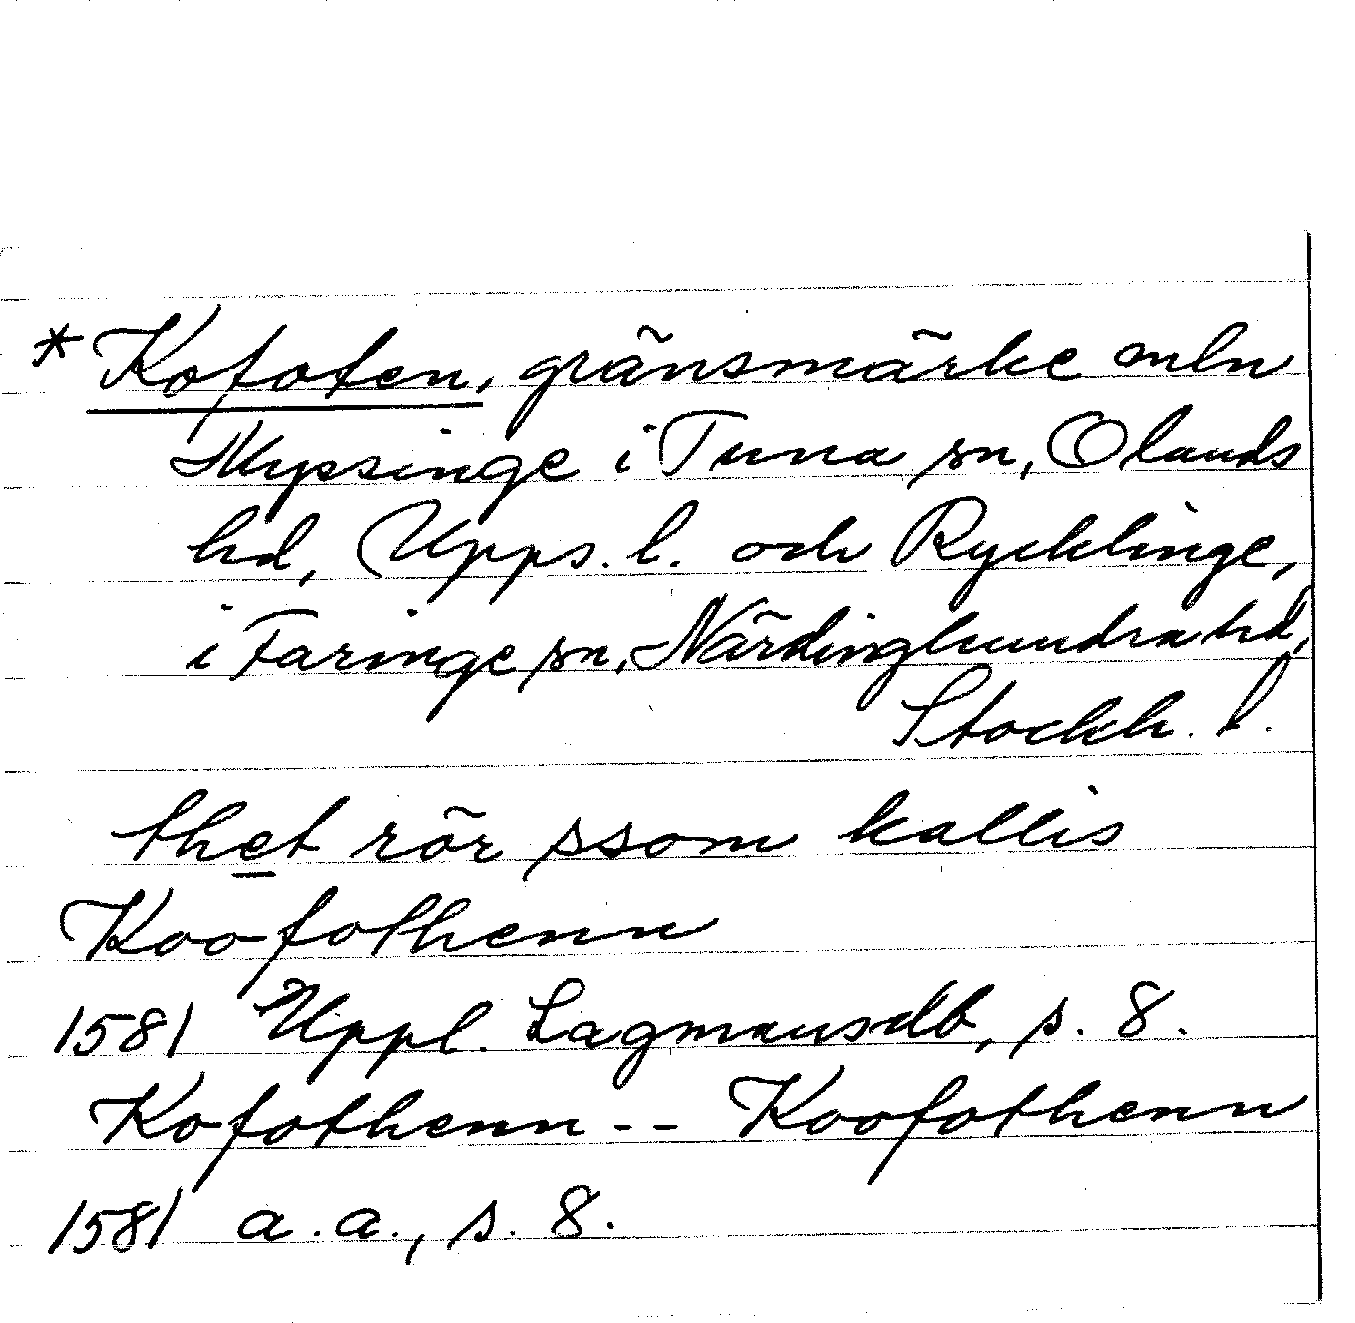 *Kofoten, gränsmärke mln
Myssinge i Tuna sn, Olands
hd, Upps. l. och Rycklinge,
i Faringe sn, Närdinghundra hd,
Stockh. l.
thet rör ssom kallis
Koofothenn
1581 Uppl. Lagmansdb, s. 8.
Kofothenn -- Koofothenn
1581 a.a., s. 8.